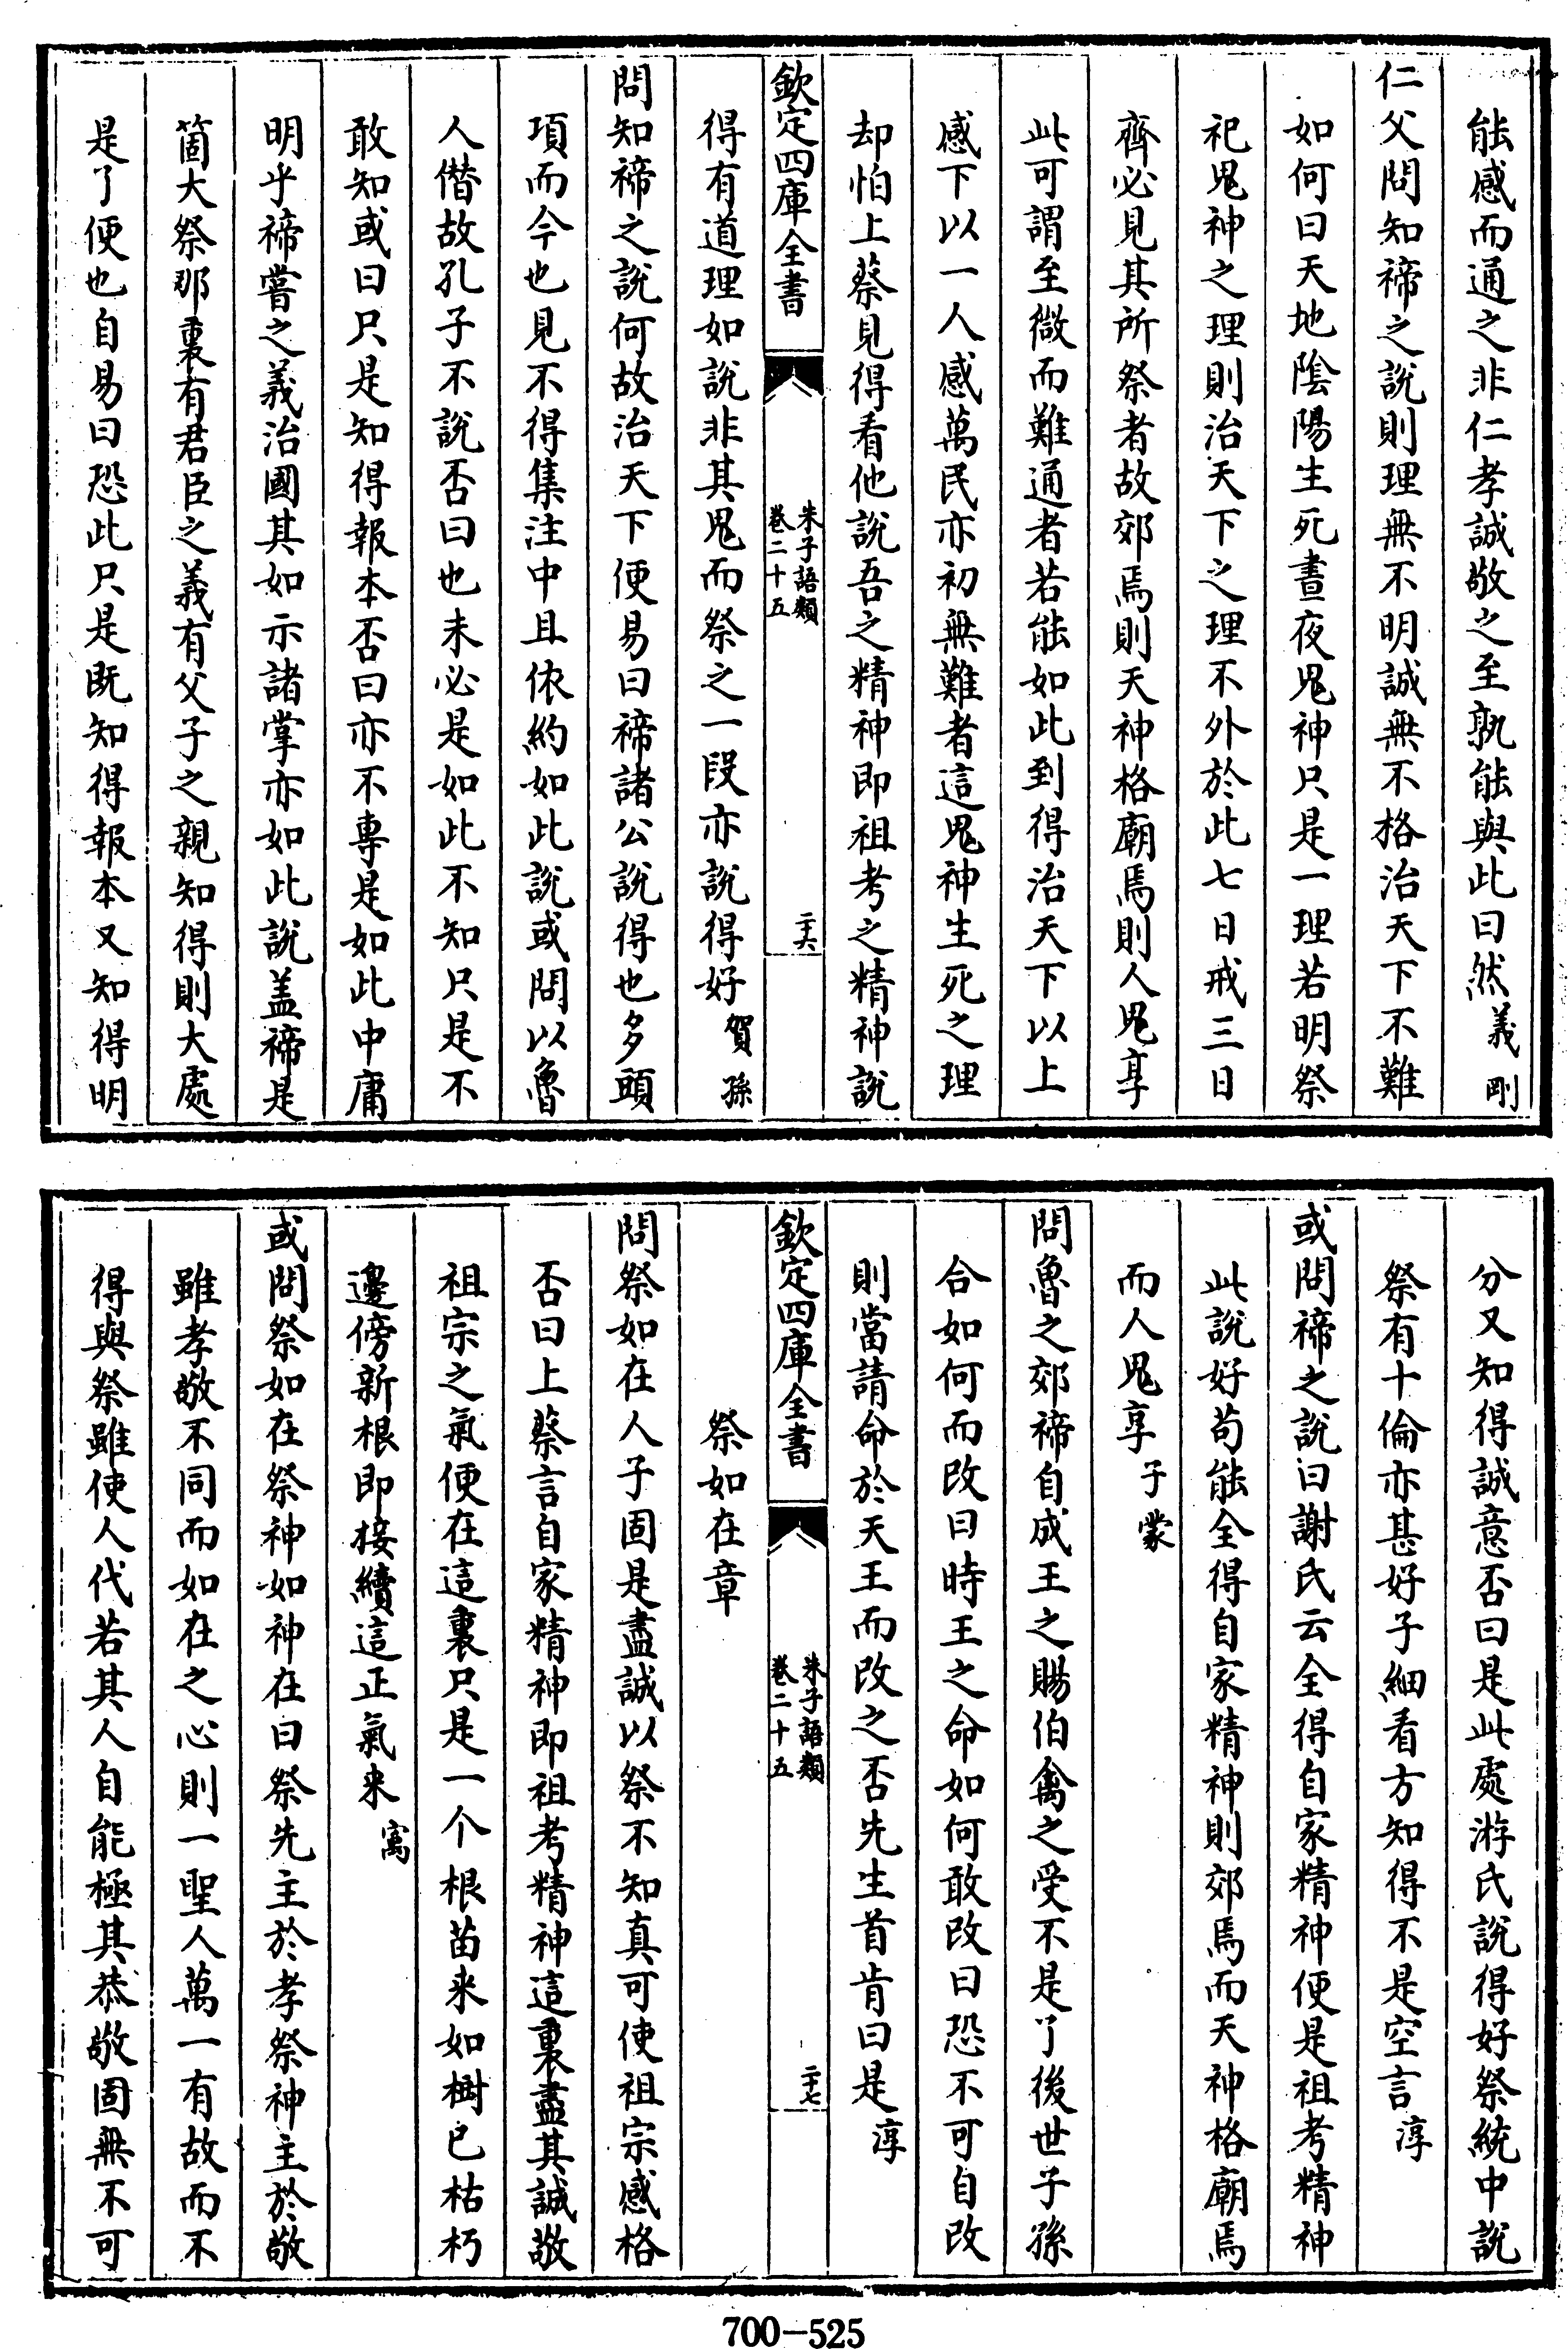 能感而通之非仁孝誠敬之至孰能與此曰然義剛
仁父問知禘之說則理無不明誠無不格治天下不難
如何曰天地陰陽生死晝夜鬼神只是一理若明祭
祀鬼神之理則治天下之理不外於此七日戒三日
齊必見其所祭者故郊焉則天神格廟焉則人鬼享
此可謂至微而難通者若能如此到得治天下以上
感下以一人感萬民亦初無難者這鬼神生死之理
却怕上蔡見得看他說吾之精神即祖考之精神說
欽定四庫全書
朱子語類
卷二十五
二十六
得有道理如說非其鬼而祭之一段亦說得好賀孫
問知禘之說何故治天下便易曰禘諸公說得也多頭
項而今也見不得集注中且依約如此說或問以魯
人僭故孔子不說否曰也未必是如此不知只是不
敢知或曰只是知得報本否曰亦不專是如此中庸
明乎禘嘗之義治國其如示諸掌亦如此說盖禘是
箇大祭那裏有君臣之義有父子之親知得則大處
是了便也自易曰恐此只是既知得報本又知得明
分又知得誠意否曰是此處游氏說得好祭統中說
祭有十倫亦甚好子細看方知得不是空言淳
或問禘之說曰謝氏云全得自家精神便是祖考精神
此說好苟能全得自家精神則郊焉而天神格廟焉
而人鬼享子蒙
問魯之郊禘自成王之賜伯禽之受不是了後世子孫
合如何而改曰時王之命如何敢改曰恐不可自改
則當請命於天王而改之否先生首肯曰是淳
欽定四庫全書
朱子語類
卷二十五
二十七
祭如在章
問祭如在人子固是盡誠以祭不知真可使祖宗感格
否曰上蔡言自家精神即祖考精神這裏盡其誠敬
祖宗之氣便在這裏只是一个根苗来如樹已枯朽
邊傍新根即接續這正氣来㝢
或問祭如在祭神如神在曰祭先主於孝祭神主於敬
雖孝敬不同而如在之心則一聖人萬一有故而不
得與祭雖使人代若其人自能極其恭敬固無不可
700-525